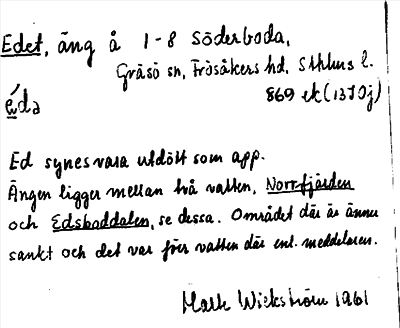 Edet, äng å 1-8 Söderboda,
Gräsö sn, Frösåkers hd, Sthlms l.
éda 869 ek (13I 0j)
Ed synes vara utdött som app.
Ängen ligger mellan två vatten, Norrfjärden
och Edsboddalen, se dessa. Området där är ännu
sankt och det var förr vatten där enl. meddelaren.
Mats Wickström 1961